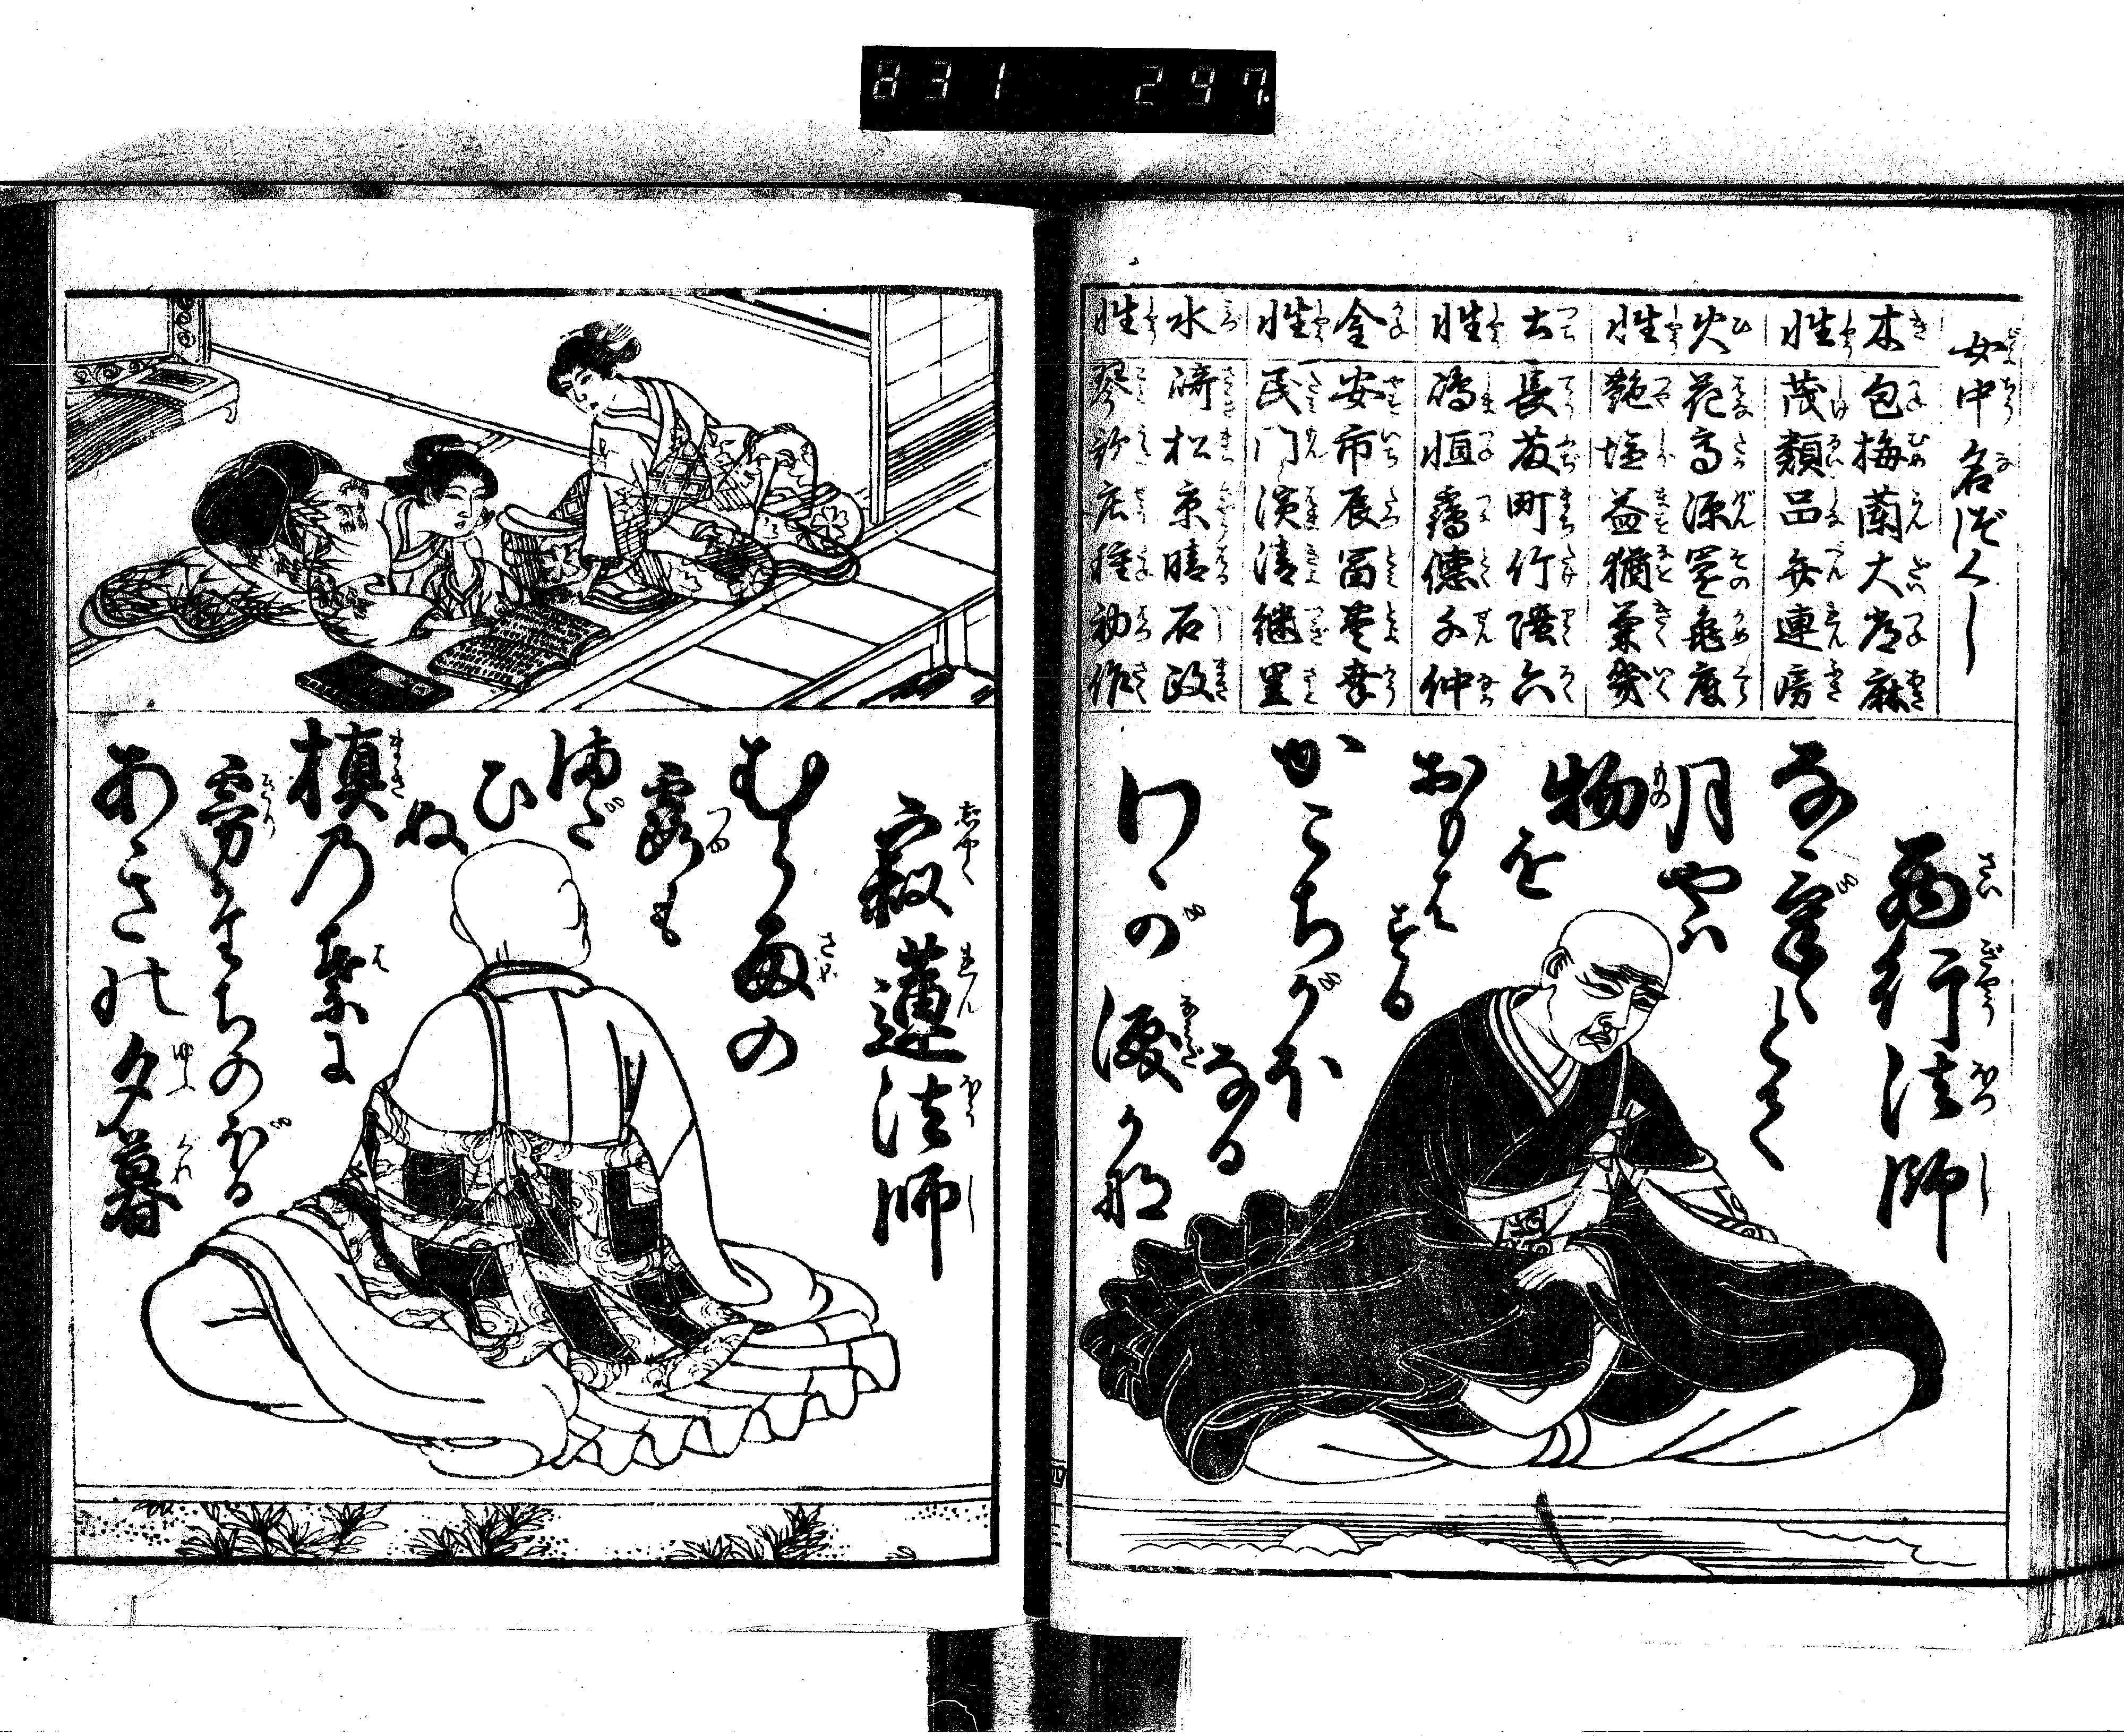 831 297
女中名づくし
木性
包梅蘭大常麻
茂類品弁連房
火性
花高源園亀庫
艶塩益猶菊幾
土性
長藤町竹陸六
嶋恒鶴徳千仲
金性
安市辰富豊幸
民門濱清継里
水性
崎松京晴石政
琴
初作
西行法師
なげゝとて
月やハ
物を
おもはする
かこちがほ
なる
わが涙かな
寂蓮法師
むら雨の
露も
まだ
ひ
ぬ
槙乃葉に
霧たちのぼる
あきの夕暮